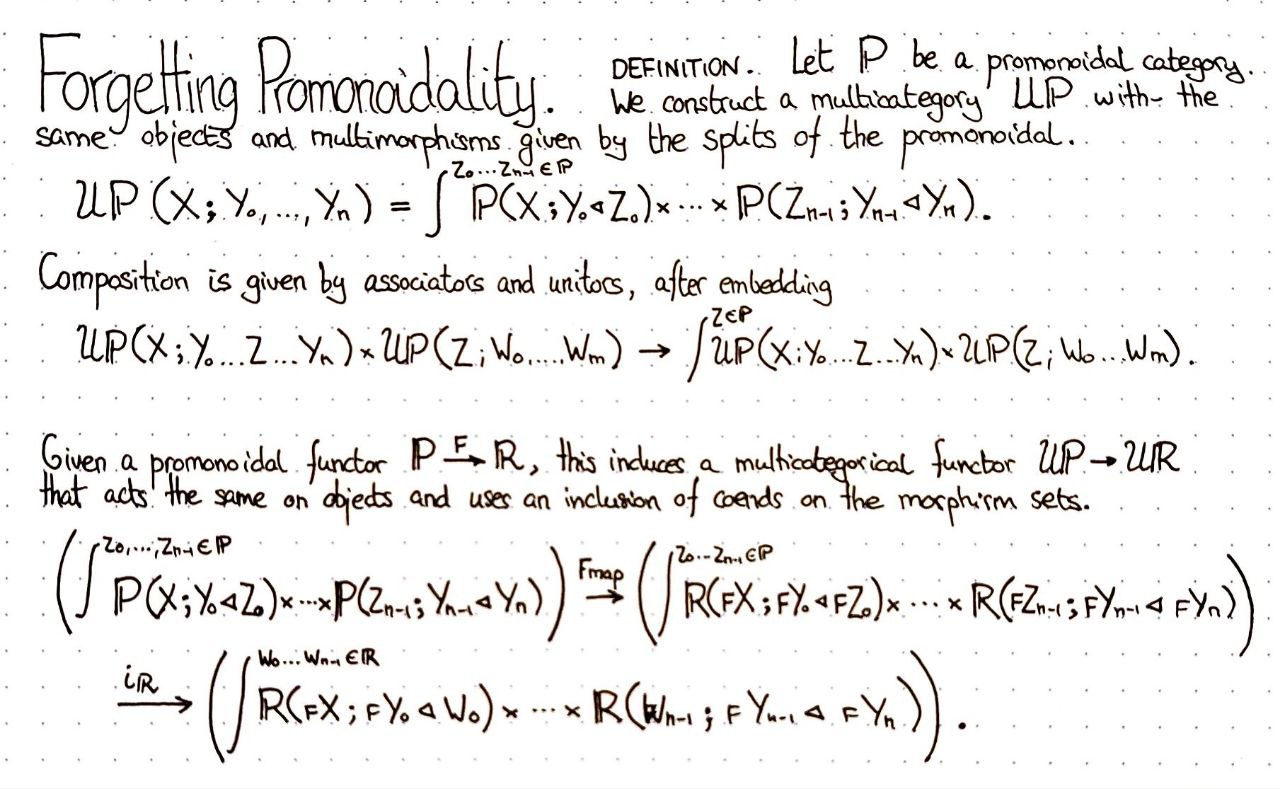 Forgetting Promonoidality. DEFINITION. Let ℙ be a promonoidal category.
We construct a multicategory 𝒰ℙ with the
same objects and multimorphisms given by the splits of the promonoidal.
𝒰ℙ(X; Y₀,..., Yₙ) = ∫^{Z₀...Zₙ₋₁∈ℙ} ℙ(X; Y₀◁Z₀)×...×ℙ(Zₙ₋₁; Yₙ₋₁◁Yₙ).
Composition is given by associators and unitors, after embedding
𝒰ℙ(X; Y₀...Z...Yₙ)×𝒰ℙ(Z; W₀.....Wₘ) → ∫^{Z∈ℙ} 𝒰ℙ(X; Y₀...Z...Yₙ)×𝒰ℙ(Z; W₀...Wₘ).
Given a promonoidal functor ℙ –F→ ℝ, this induces a multicategorical functor 𝒰ℙ → 𝒰ℝ
that acts the same on objects and uses an inclusion of coends on the morphism sets.
(∫^{Z₀,...,Zₙ₋₁∈ℙ} ℙ(X; Y₀◁Z₀)×...×ℙ(Zₙ₋₁; Yₙ₋₁◁Yₙ)) –Fmap→ (∫^{Z₀...Zₙ₋₁∈ℙ} ℝ(FX; FY₀◁FZ₀)×...×ℝ(FZₙ₋₁; FYₙ₋₁◁FYₙ))
–iℝ→ (∫^{W₀...Wₙ₋₁∈ℝ} ℝ(FX; FY₀◁W₀)×...×ℝ(Wₙ₋₁; FYₙ₋₁◁FYₙ)).